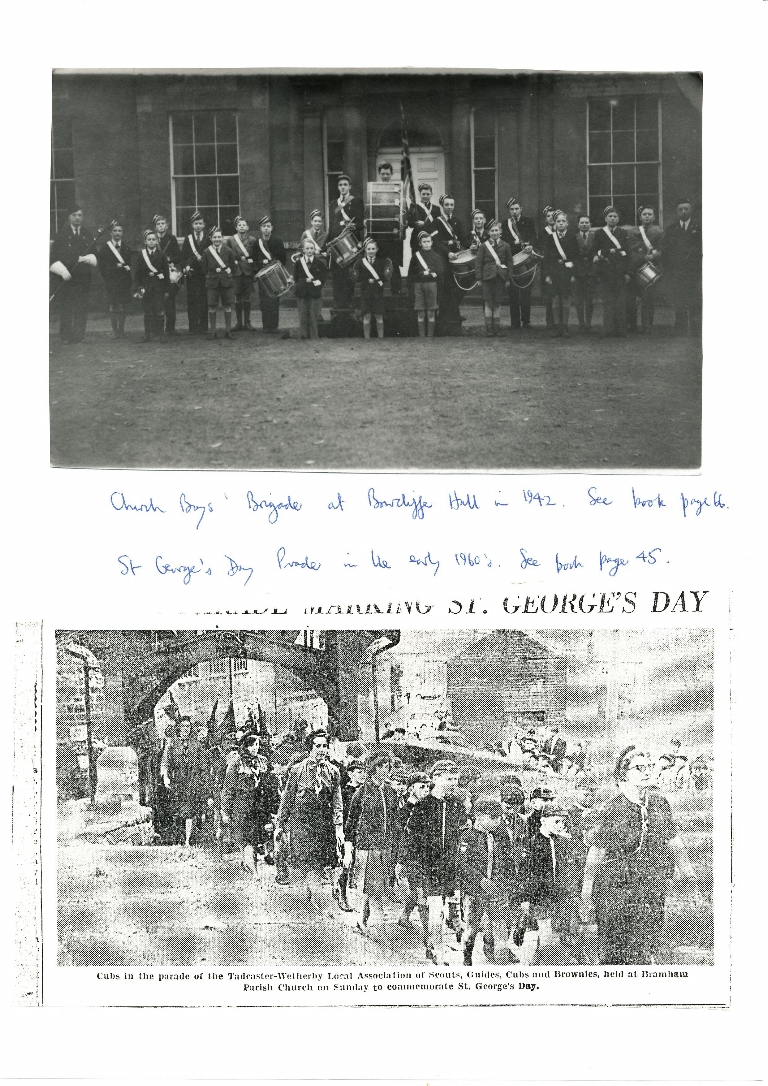 Church Boys' Brigade at Bowcliffe Hall in 1942. See book page 66.
St George's Day Parade in the early 1960's. See book page 45.
MARKING ST. GEORGE'S DAY
Cubs in the parade of the Tadcaster-Wetherby Local Association of Scouts, Guides, Cubs and Brownies, held at Bramham
Parish Church on Sunday to commemorate St. George's Day.